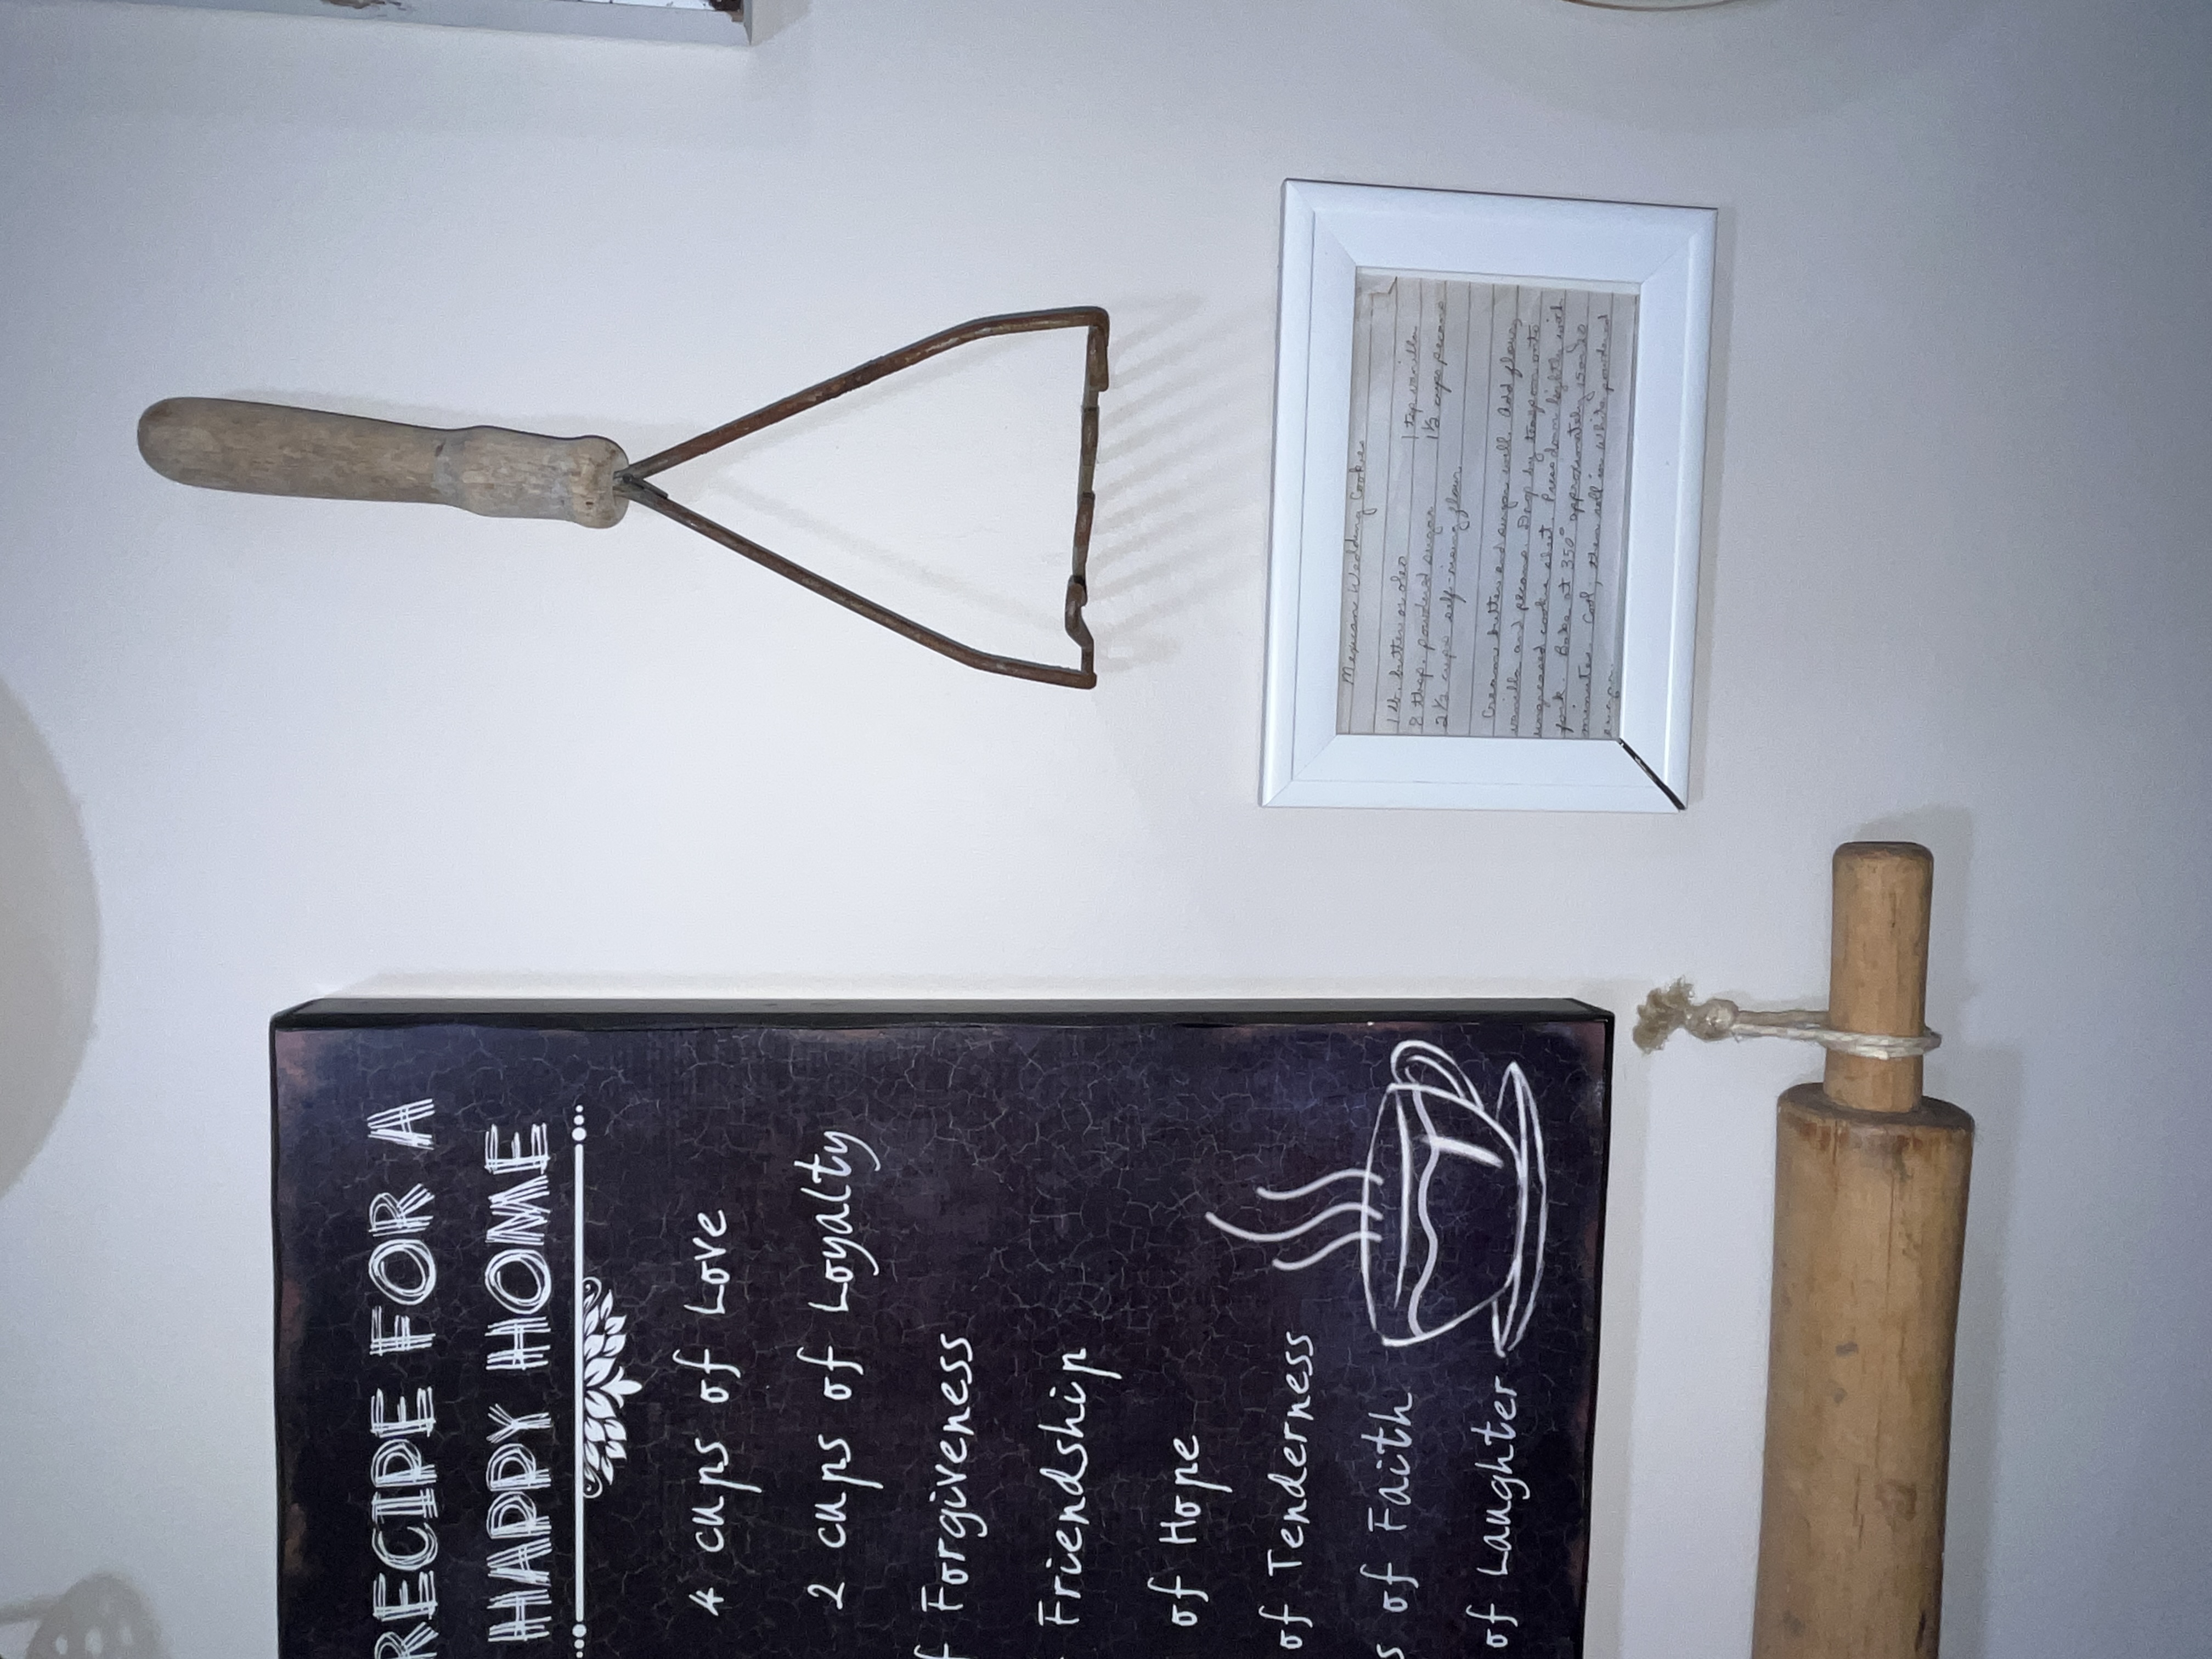 RECIPE FOR A
HAPPY HOME
4 cups of Love
2 cups of Loyalty
Forgiveness
Friendship
of Hope
of Tenderness
of Faith
of Laughter
Mexican Wedding Cookies
1 lb. butter or oleo 1 tsp vanilla
8 tbsp. powdered sugar 1½ cups pecans
2½ cups self-rising flour
Cream butter and sugar well. Add flour,
vanilla and pecans. Drop by teaspoon onto
ungreased cookie sheet. Press down lightly with
fork. Bake at 350° approximately 15 to 20
minutes. Cool, then roll in white powdered
sugar.